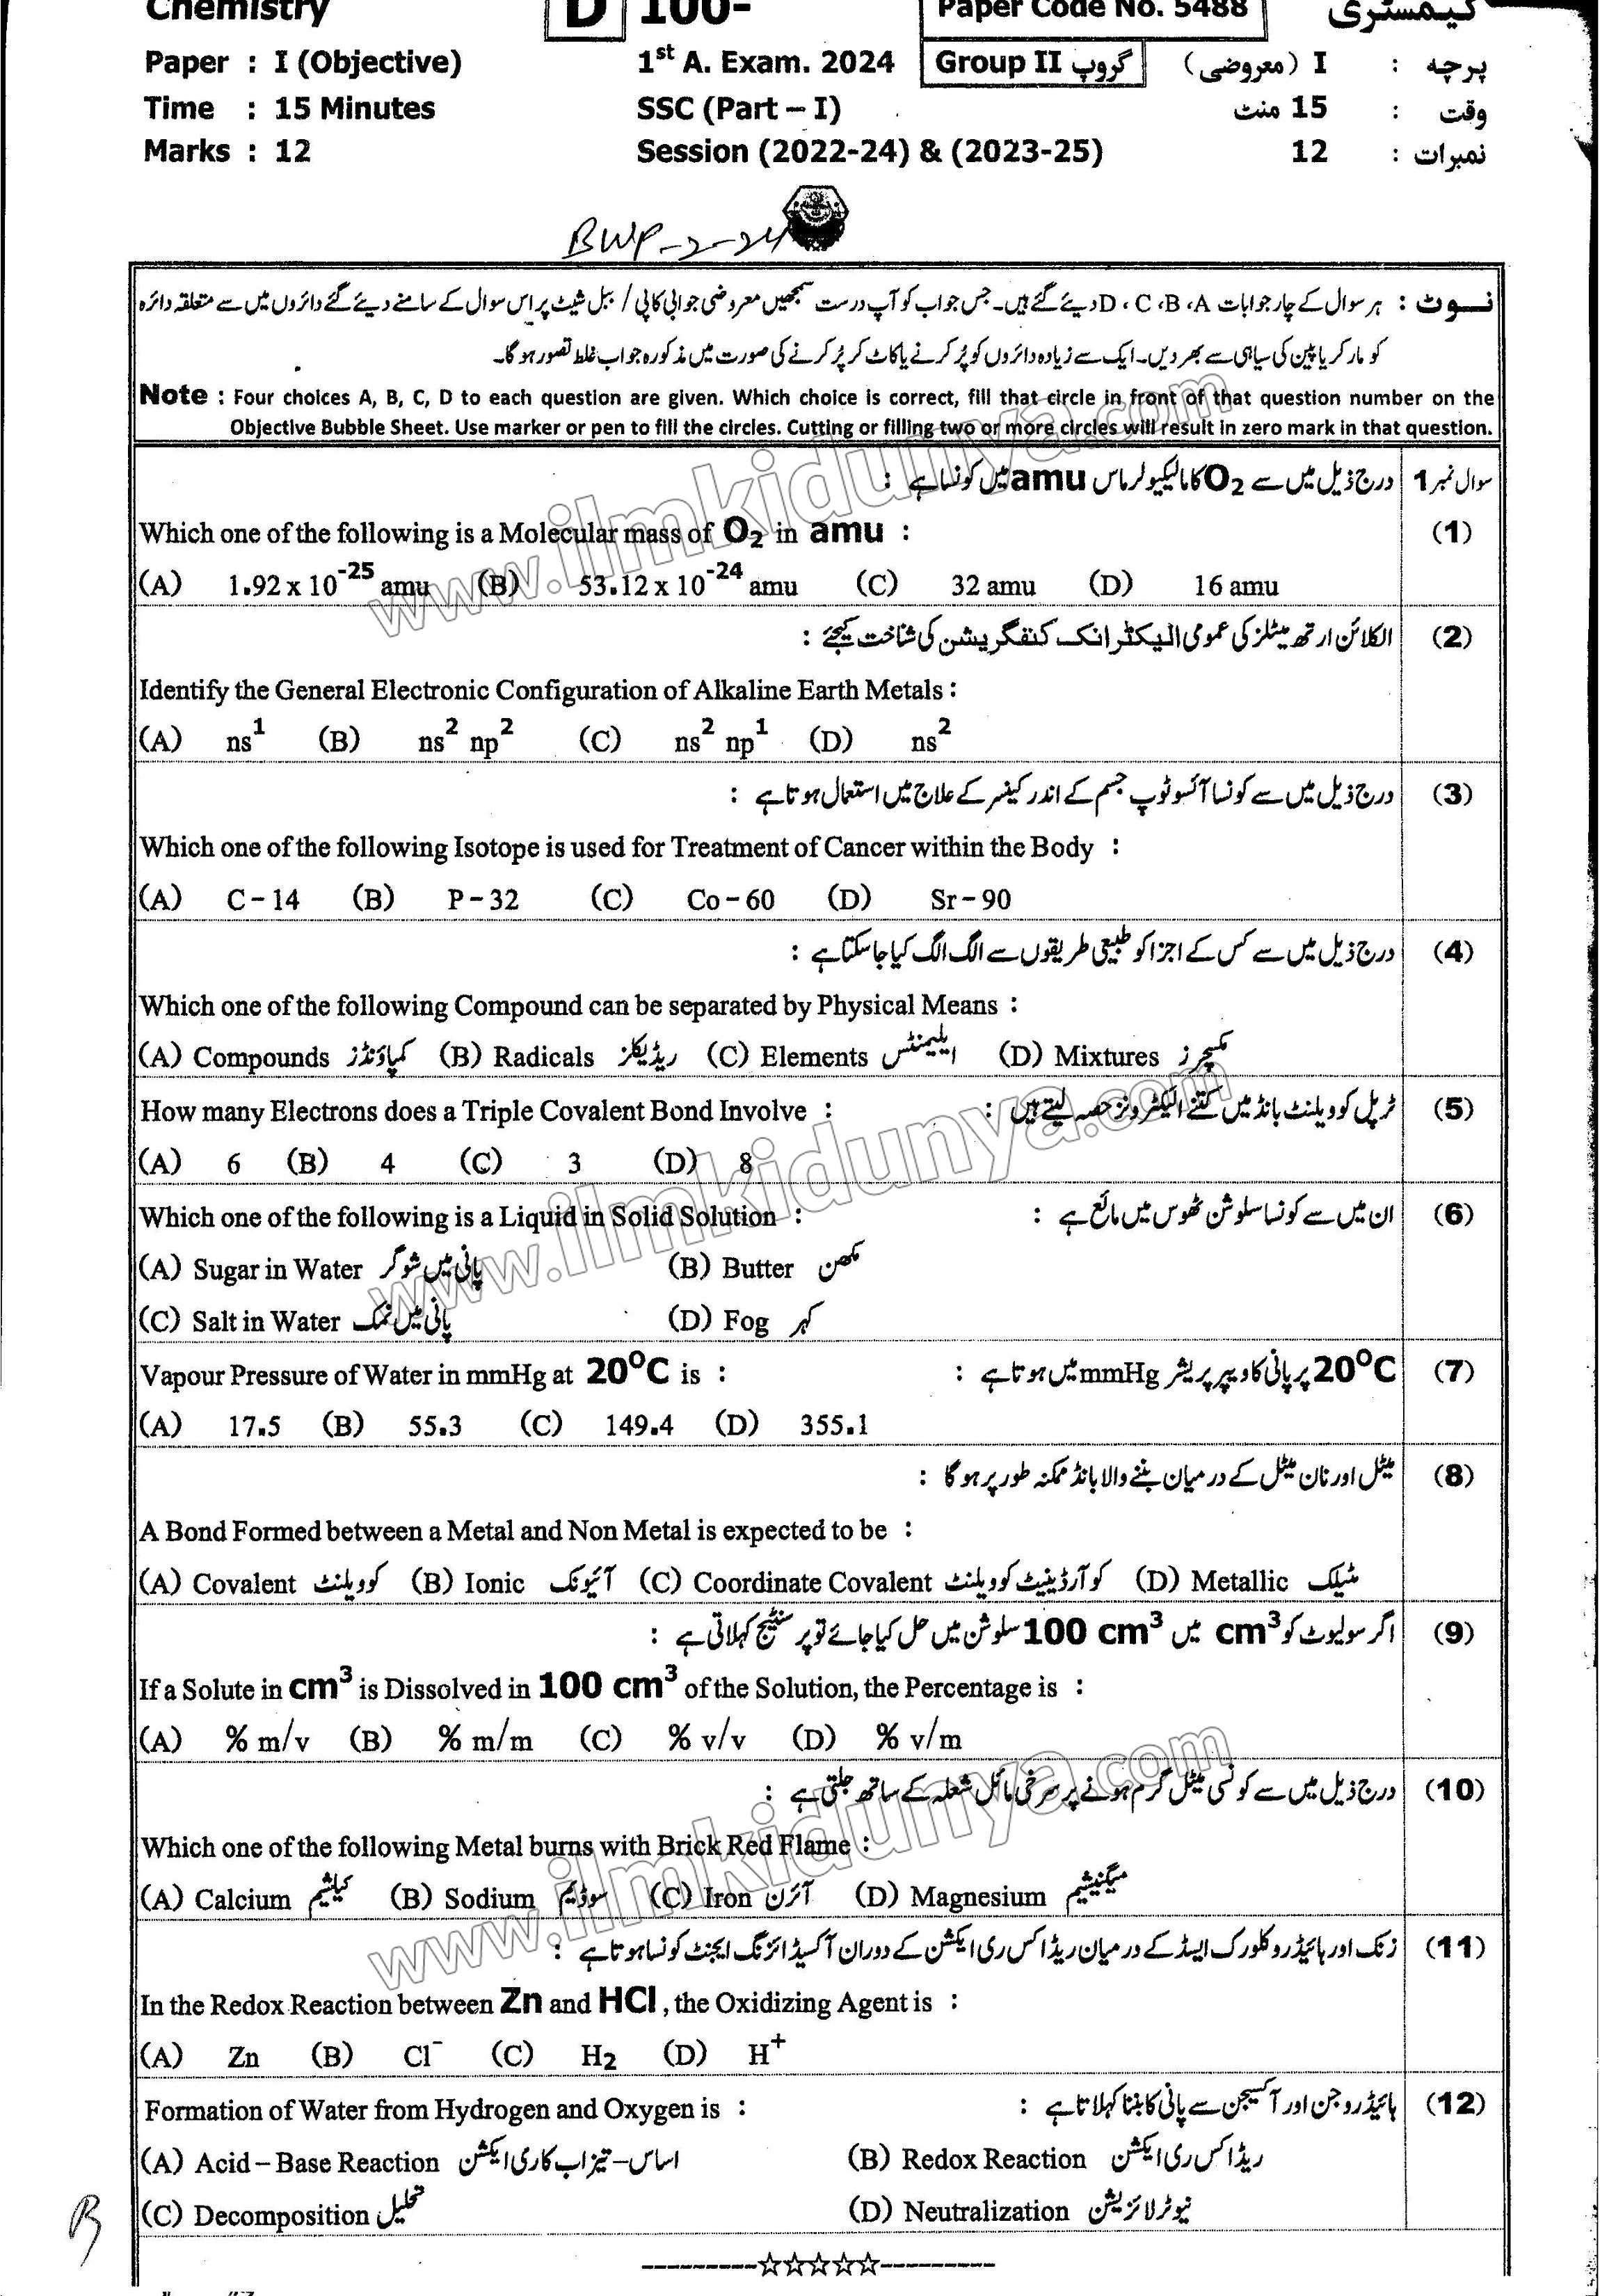 Chemistry D 100- Paper Code No. 5488 کیمسٹری
Paper : I (Objective) 1st A. Exam. 2024 Group II گروپ I (معروضی) : پرچہ
Time : 15 Minutes SSC (Part – I) 15 منٹ : وقت
Marks : 12 Session (2022-24) & (2023-25) 12 : نمبرات
BWP-2-24
نوٹ : ہر سوال کے چار جوابات D ، C ،B ،A دیئے گئے ہیں۔ جس جواب کو آپ درست سمجھیں معروضی جوابی کاپی / ببل شیٹ پر اس سوال کے سامنے دیئے گئے دائروں میں سے متعلقہ دائرہ
کو مارکر یا پین کی سیاہی سے بھر دیں۔ ایک سے زیادہ دائروں کو پُر کرنے یا کاٹ کر پُر کرنے کی صورت میں مذکورہ جواب غلط تصور ہو گا۔
Note : Four choices A, B, C, D to each question are given. Which choice is correct, fill that circle in front of that question number on the
Objective Bubble Sheet. Use marker or pen to fill the circles. Cutting or filling two or more circles will result in zero mark in that question.
سوال نمبر 1 درج ذیل میں سے O2 کا مالیکیولر ماس amu میں کونسا ہے :
Which one of the following is a Molecular mass of O2 in amu : (1)
(A) 1.92 x 10-25 amu (B) 53.12 x 10-24 amu (C) 32 amu (D) 16 amu
(2) الکلائن ارتھ میٹلز کی عمومی الیکٹرانک کنفگریشن کی شناخت کیجئے :
Identify the General Electronic Configuration of Alkaline Earth Metals :
(A) ns1 (B) ns2 np2 (C) ns2 np1 (D) ns2
(3) درج ذیل میں سے کونسا آئسوٹوپ جسم کے اندر کینسر کے علاج میں استعمال ہوتا ہے :
Which one of the following Isotope is used for Treatment of Cancer within the Body :
(A) C – 14 (B) P – 32 (C) Co – 60 (D) Sr – 90
(4) درج ذیل میں سے کس کے اجزا کو طبیعی طریقوں سے الگ الگ کیا جا سکتا ہے :
Which one of the following Compound can be separated by Physical Means :
(A) Compounds کمپاؤنڈز (B) Radicals ریڈیکلز (C) Elements ایلیمنٹس (D) Mixtures مکسچرز
How many Electrons does a Triple Covalent Bond Involve : ٹرپل کوویلنٹ بانڈ میں کتنے الیکٹرونز حصہ لیتے ہیں : (5)
(A) 6 (B) 4 (C) 3 (D) 8
Which one of the following is a Liquid in Solid Solution : ان میں سے کونسا سلوشن ٹھوس میں مائع ہے : (6)
(A) Sugar in Water پانی میں شوگر (B) Butter مکھن
(C) Salt in Water پانی میں نمک (D) Fog کہر
Vapour Pressure of Water in mmHg at 20°C is : 20°C پر پانی کا ویپر پریشر mmHg میں ہوتا ہے : (7)
(A) 17.5 (B) 55.3 (C) 149.4 (D) 355.1
(8) میٹل اور نان میٹل کے درمیان بننے والا بانڈ ممکنہ طور پر ہو گا :
A Bond Formed between a Metal and Non Metal is expected to be :
(A) Covalent کوویلنٹ (B) Ionic آئیونک (C) Coordinate Covalent کوآرڈینیٹ کوویلنٹ (D) Metallic مٹیلک
(9) اگر سولیوٹ کو cm3 میں 100 cm3 سلوشن میں حل کیا جائے تو پرسنٹیج کہلاتی ہے :
If a Solute in cm3 is Dissolved in 100 cm3 of the Solution, the Percentage is :
(A) % m/v (B) % m/m (C) % v/v (D) % v/m
(10) درج ذیل میں سے کونسی میٹل گرم ہونے پر سرخی مائل شعلہ کے ساتھ جلتی ہے :
Which one of the following Metal burns with Brick Red Flame :
(A) Calcium کیلشیم (B) Sodium سوڈیم (C) Iron آئرن (D) Magnesium میگنیشیم
(11) زنک اور ہائیڈروکلورک ایسڈ کے درمیان ریڈاکس ری ایکشن کے دوران آکسیڈائزنگ ایجنٹ کونسا ہوتا ہے :
In the Redox Reaction between Zn and HCl , the Oxidizing Agent is :
(A) Zn (B) Cl- (C) H2 (D) H+
Formation of Water from Hydrogen and Oxygen is : ہائیڈروجن اور آکسیجن سے پانی کا بننا کہلاتا ہے : (12)
(A) Acid – Base Reaction اساس–تیزاب کا ری ایکشن (B) Redox Reaction ریڈاکس ری ایکشن
(C) Decomposition تحلیل (D) Neutralization نیوٹرلائزیشن
---------☆☆☆☆☆---------
B
www.ilmkidunya.com
www.ilmkidunya.com
www.ilmkidunya.com